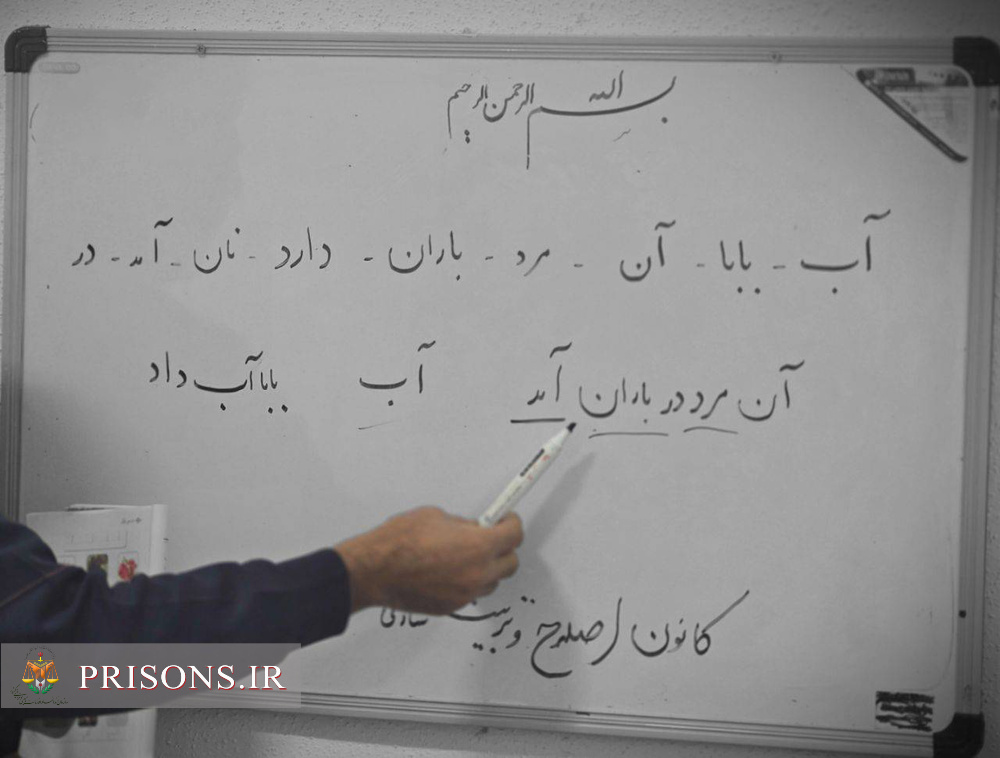 بسم الله الرحمن الرحیم
آب - بابا - آن - مرد - باران - دارد - نان - آمد - در
آن مرد در باران آمد آب بابا آب داد
کانون اصلاح و تربیت ساری
PRISONS.IR